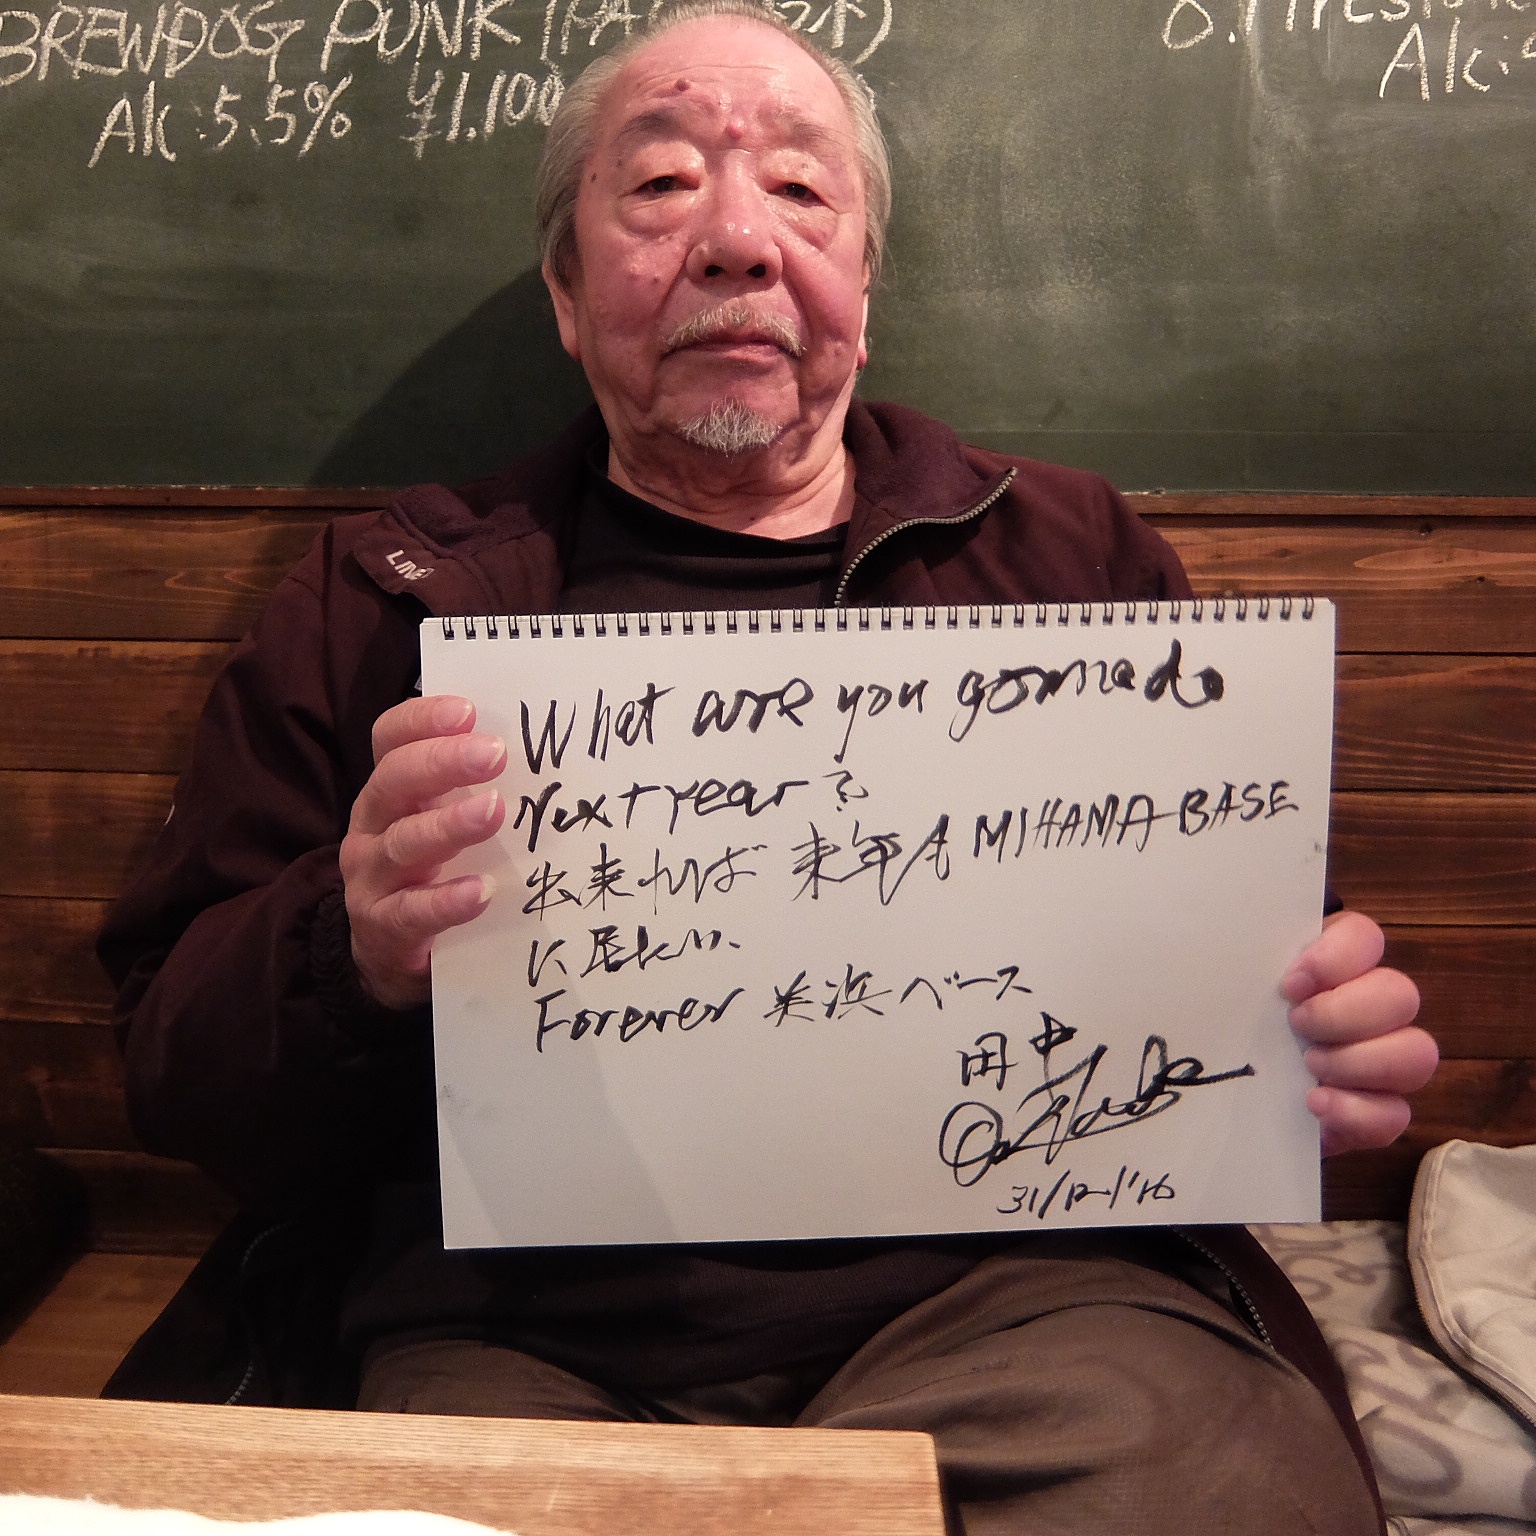 BREWDOG PUNK IPA
Alc.5.5% ¥1,100
Alc:
LINE
What are you gonna do
Next year?
出来れば 来年も MIHAMA-BASE
に居たい、
Forever 美浜ベース
田中
31/12/'16